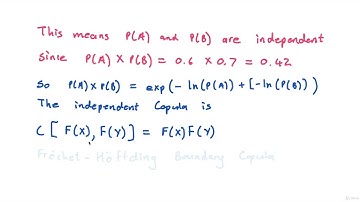 This means P(A) and P(B) are independent
Since P(A) X P(B) = 0.6 X 0.7 = 0.42
So P(A) X P(B) = exp(-ln(P(A)) + [-ln(P(B))])
The independent Copula is
C [ F(X), F(Y) ] = F(X) F(Y)
Fréchet-Höffding Boundary Copula